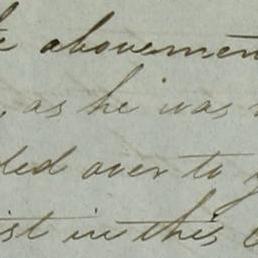 abovemen
, as he was
ded over to
ist in this